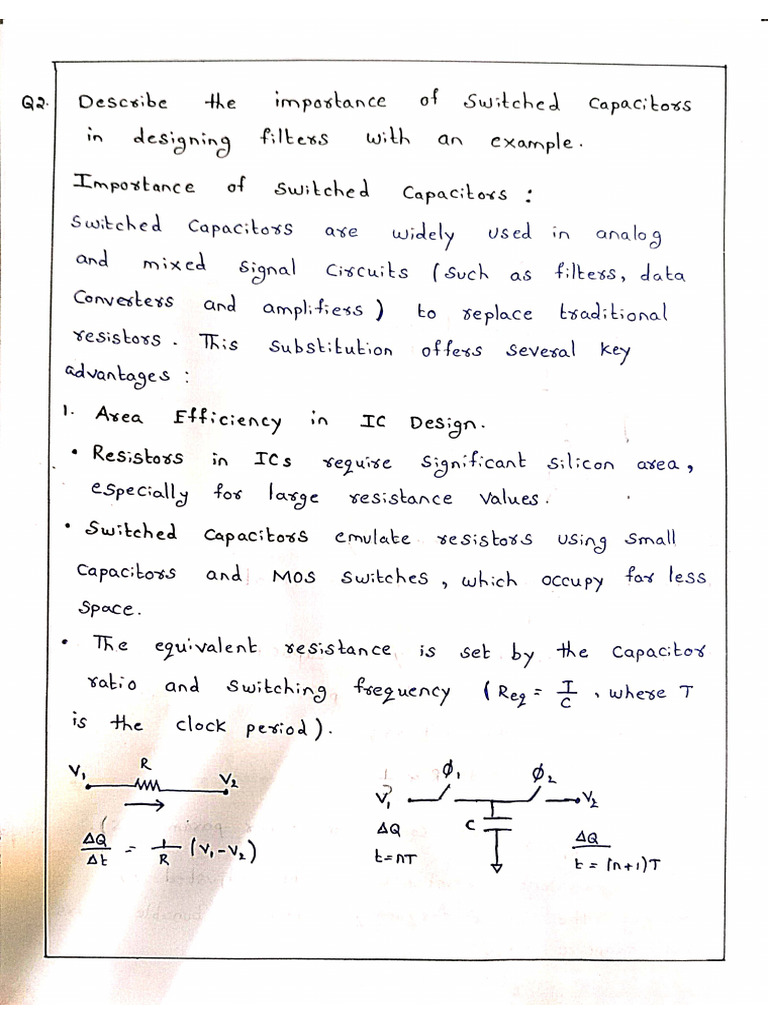 Q2. Describe the importance of switched capacitors
in designing filters with an example.
Importance of switched capacitors :
Switched capacitors are widely used in analog
and mixed signal circuits (such as filters, data
converters and amplifiers) to replace traditional
resistors. This substitution offers several key
advantages :
1. Area Efficiency in IC Design.
• Resistors in ICs require significant silicon area,
especially for large resistance values.
• Switched capacitors emulate resistors using small
capacitors and MOS switches, which occupy far less
space.
• The equivalent resistance is set by the capacitor
ratio and switching frequency (Req = T/C, where T
is the clock period).
V1 R V2
ΔQ/Δt = 1/R (V1-V2)
V1 ϕ1 ϕ2 V2
C
ΔQ
t=nT
ΔQ
t=(n+1)T